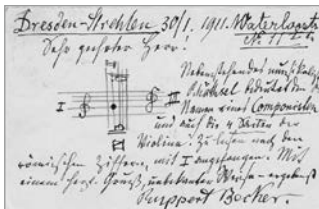 Dresden-Strehlen, 30/1. 1911. Waterloostr.
Sehr geehrter Herr!
Nebenstehendes musikalische
Räthsel bedeutet den
Namen eines Componisten
I II
und auch die 4 Saiten der
Violine! Zu lesen nach den
römischen Ziffern, mit I angefangen. Mit
einem herzl. Gruß, unbekannter Weise - ergebenst
Ruppert Becker.